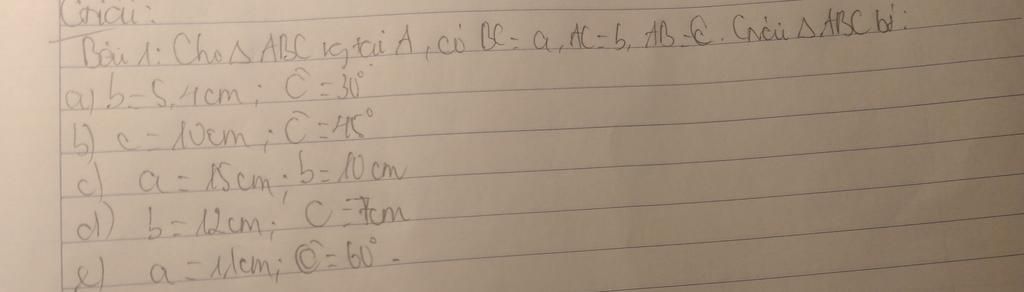 Giải:
Bài 1: Cho △ ABC vg tại A, có BC = a, AC = b, AB = c. Giải △ ABC bt:
a) b = 5,4cm; Ĉ = 30°
b) c = 10cm; Ĉ = 45°
c) a = 15cm; b = 10cm
d) b = 12cm; c = 7cm
e) a = 11cm; Ĉ = 60°.